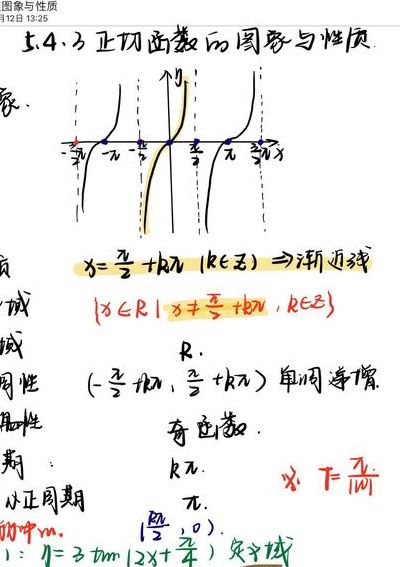 图象与性质
月12日 13:25
5.4.3 正切函数的图象与性质
象.
y
-3/2π -π -π/2 π/2 π 3/2π x
x=π/2+kπ (k∈Z) ⇒渐近线
域 {x∈R | x≠π/2+kπ, k∈Z}
域 R.
周性 (-π/2+kπ, π/2+kπ) 单调递增.
偶性 奇函数.
期: kπ. T=π/|ω|
小正周期 π.
(kπ/2, 0).
1: y=3tan(2x+π/4) 定义域